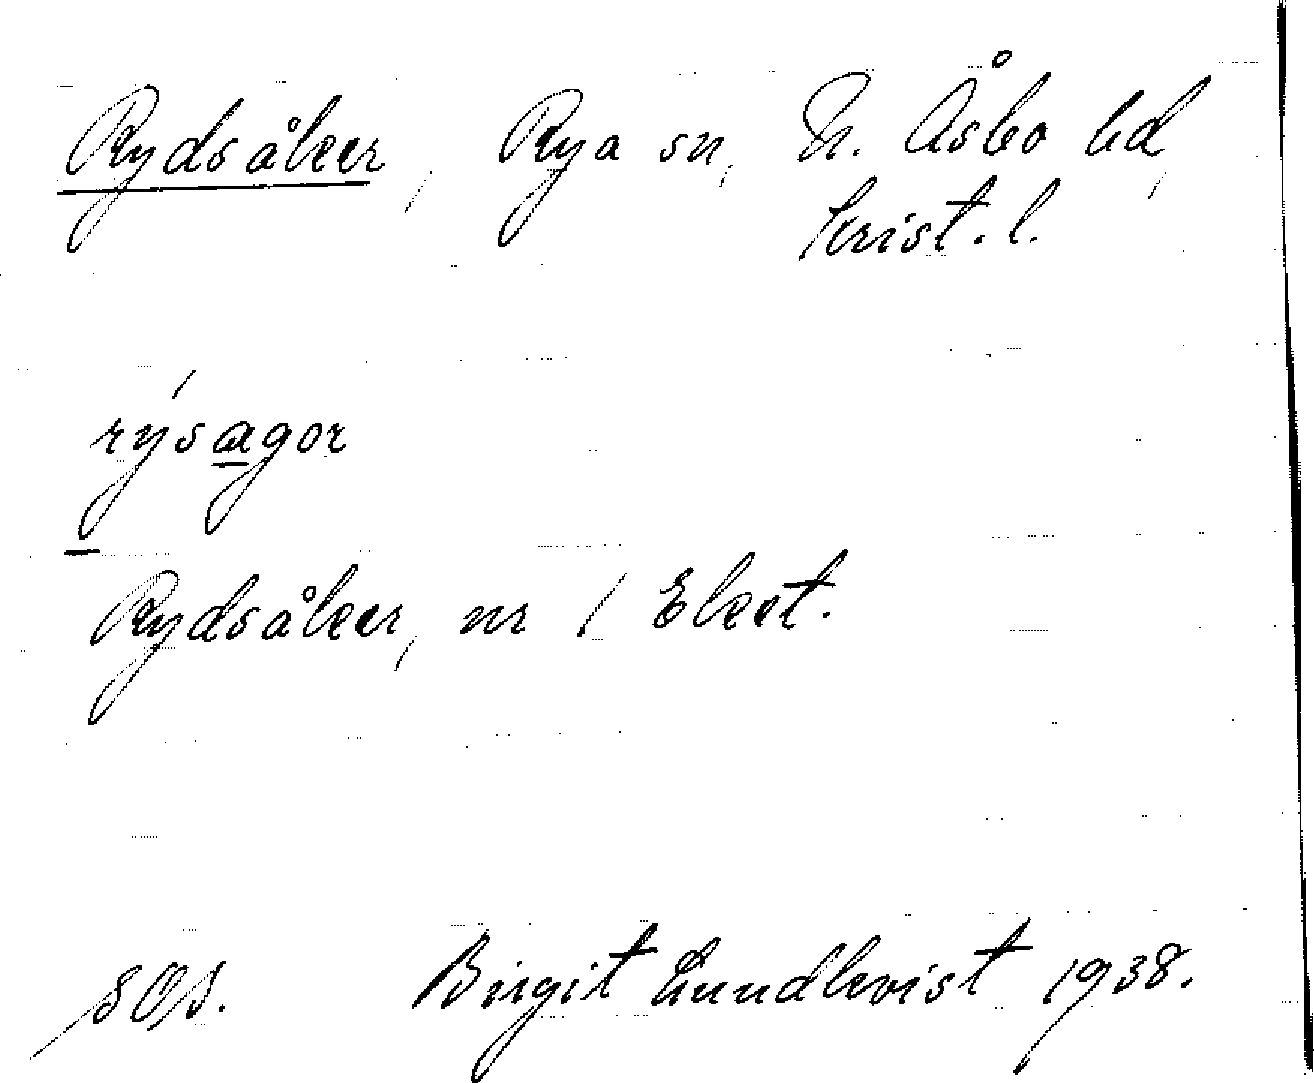 Rydsåker, Rya sn, N. Åsbo hd,
Krist. l.
rýsagor
Rydsåker, nr 1 Ekest.
SOS. Birgit Lundkvist 1938.